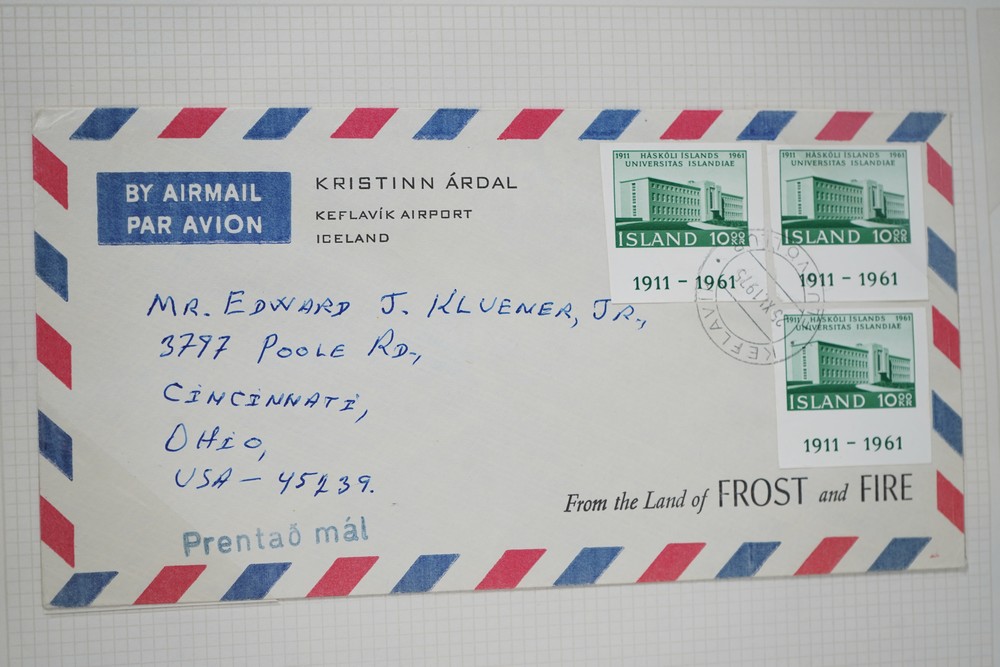 BY AIRMAIL
PAR AVION
KRISTINN ÁRDAL
KEFLAVÍK AIRPORT
ICELAND
1911 HÁSKÓLI ÍSLANDS 1961
UNIVERSITAS ISLANDIAE
ÍSLAND 10 00 KR
1911 - 1961
1911 HÁSKÓLI ÍSLANDS 1961
UNIVERSITAS ISLANDIAE
ÍSLAND 10 00 KR
1911 - 1961
25 XI 1975
1911 HÁSKÓLI ÍSLANDS 1961
UNIVERSITAS ISLANDIAE
ÍSLAND 10 00 KR
1911 - 1961
MR. EDWARD J. KLUENER, JR.,
3797 POOLE RD.,
CINCINNATI,
OHIO,
USA - 45239.
Prentað mál
From the Land of FROST and FIRE